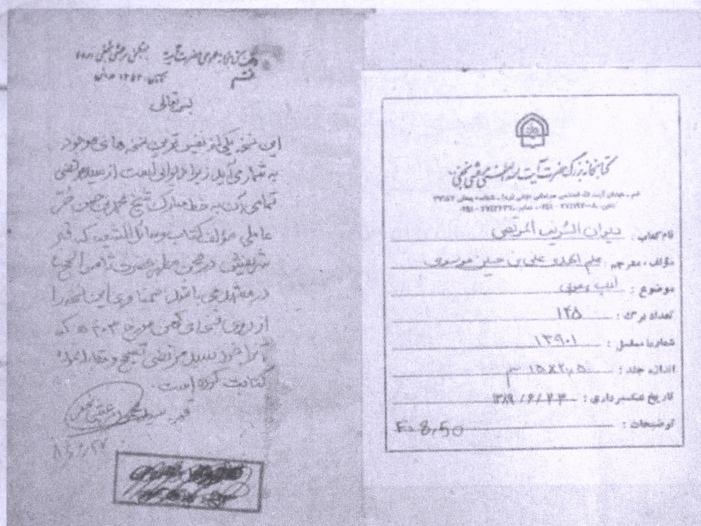 بسمه تعالی
این نسخه یکی از نفیس ترین نسخه های موجود
به شمار می آید زیرا دیوانی است از سید مرتضی
تمامی آن به خط مبارک شیخ محمد بن حسن حر
عاملی مؤلف کتاب وسائل الشیعه که قبر
شریفش در صحن مطهر حضرت ثامن الحجج
در مشهد می باشد ضمنا وی این نسخه را
از روی نسخه ای کهن مورخ ۴۰۳ ه که
آنرا خود سید مرتضی تصحیح و مقابله
کتابت کرده است.
کتابخانه بزرگ حضرت آیت الله العظمی مرعشی نجفی
نام کتاب : دیوان الشریف المرتضی
مؤلف ، مترجم : علم الهدی علی بن حسین موسوی
موضوع : ادب عربی
تعداد برگ : ۱۲۵
شماره مسلسل : ۱۳۹۰۱
اندازه جلد :
تاریخ عکسبرداری : ۱۳۸۹/۶/۲۳
توضیحات : F= 8,50